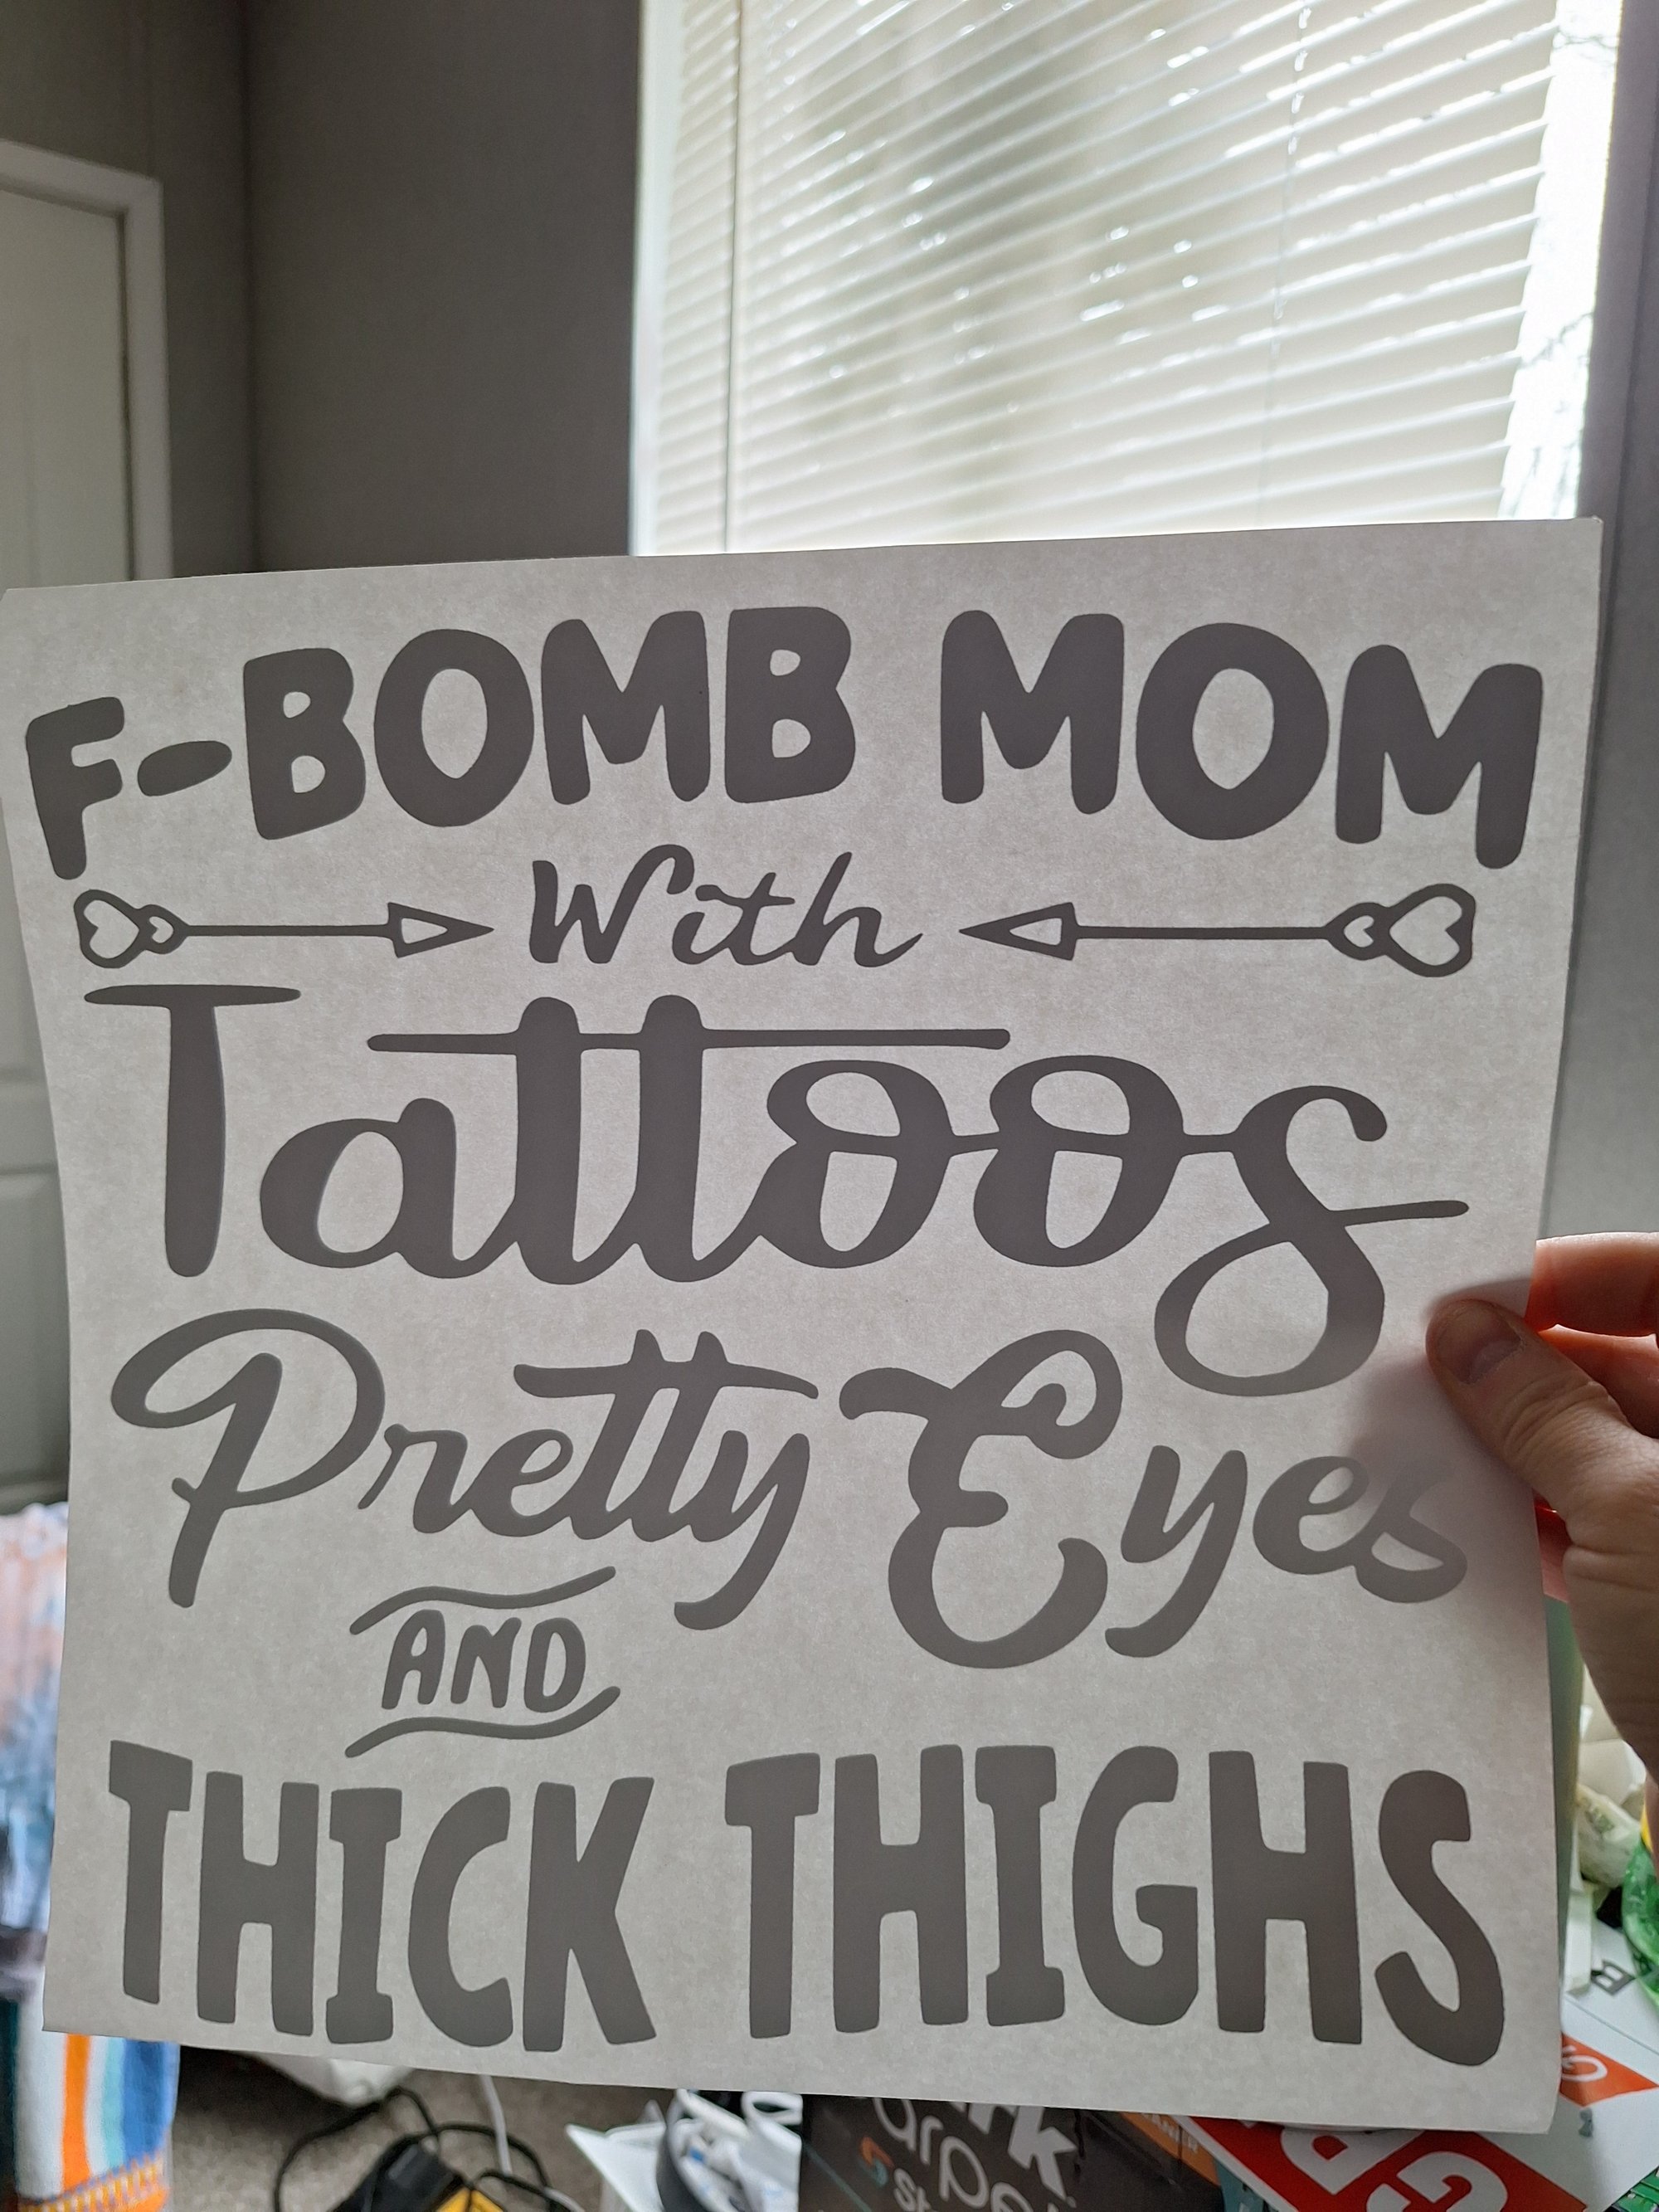 F-BOMB MOM
With
Tattoos
Pretty Eyes
AND
THICK THIGHS